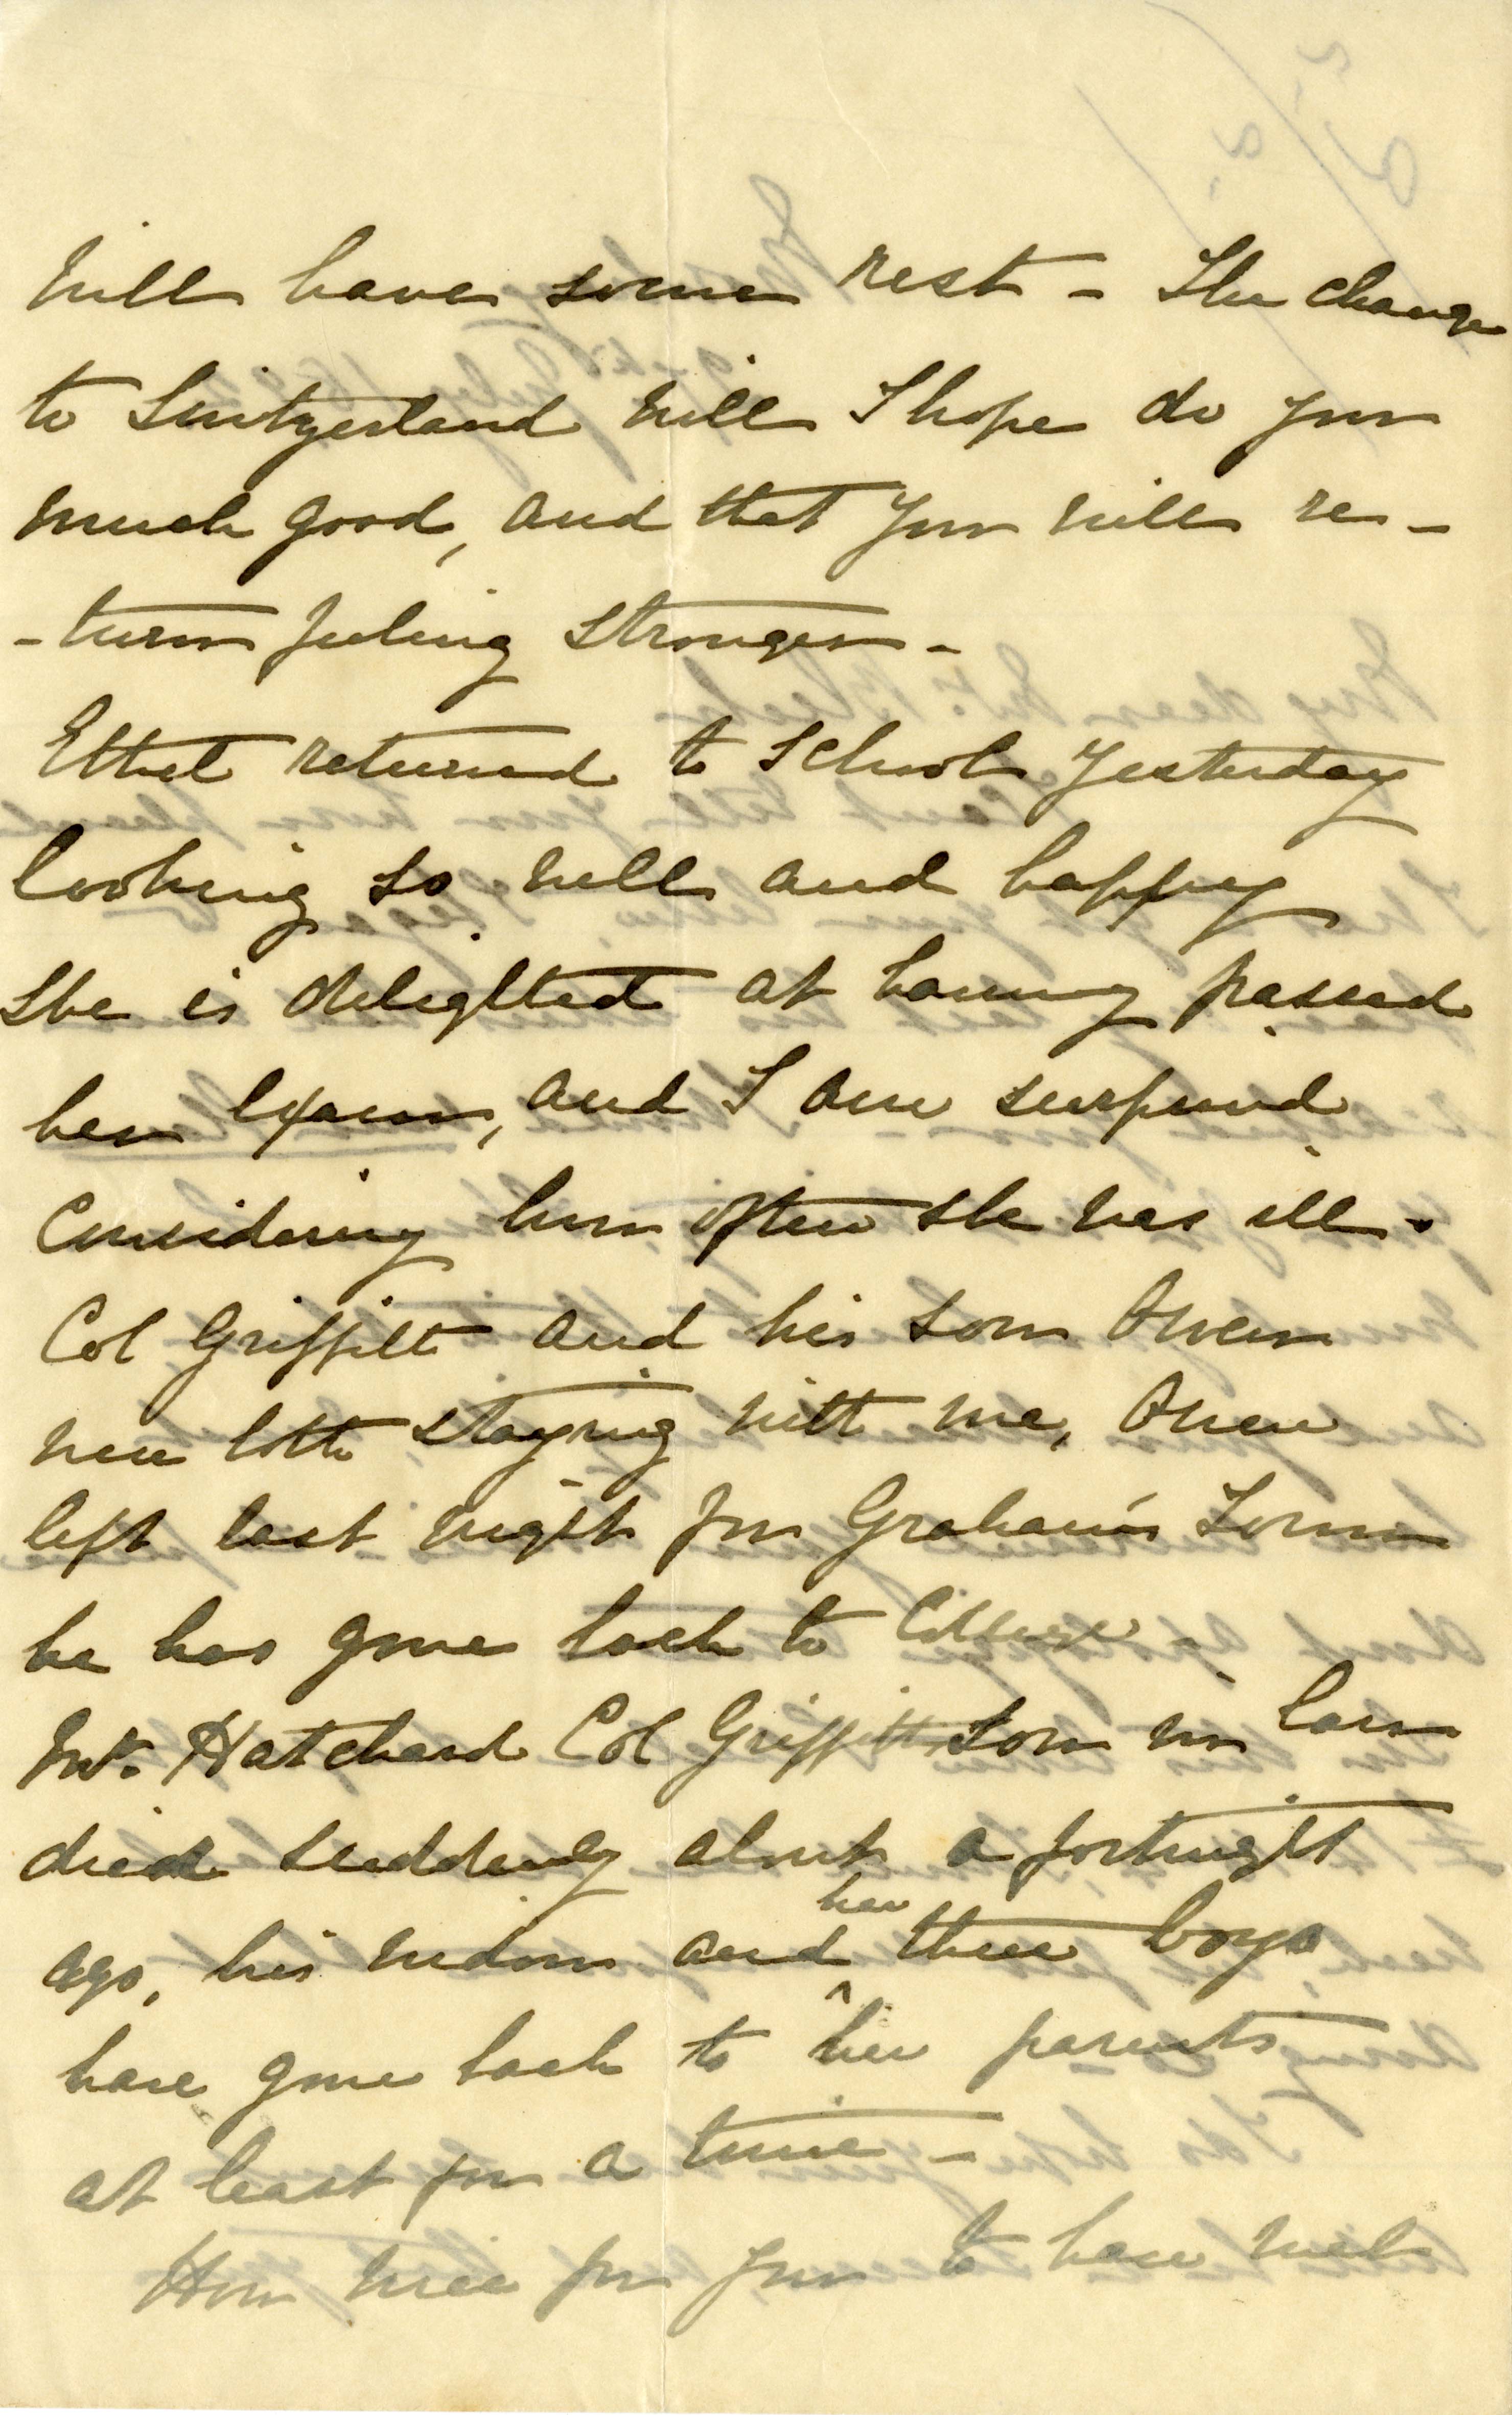 will have some rest – The change
to Switzerland will I hope do you
much good, and that you will re –
– turn feeling stronger –
Ethel returned to School yesterday
looking so well and happy
She is delighted at having passed
her Exam, and I am surprised
Considering how often she was ill.
Col Griffith and his son Owen
were both staying with me, Owen
left last night for Graham's Town
he has gone back to College –
Mr. Hatchard Col Griffith son in law
died suddenly about a fortnight
ago, his widow and her three boys
have gone back to her parents
at least for a time –
How nice for you to have met